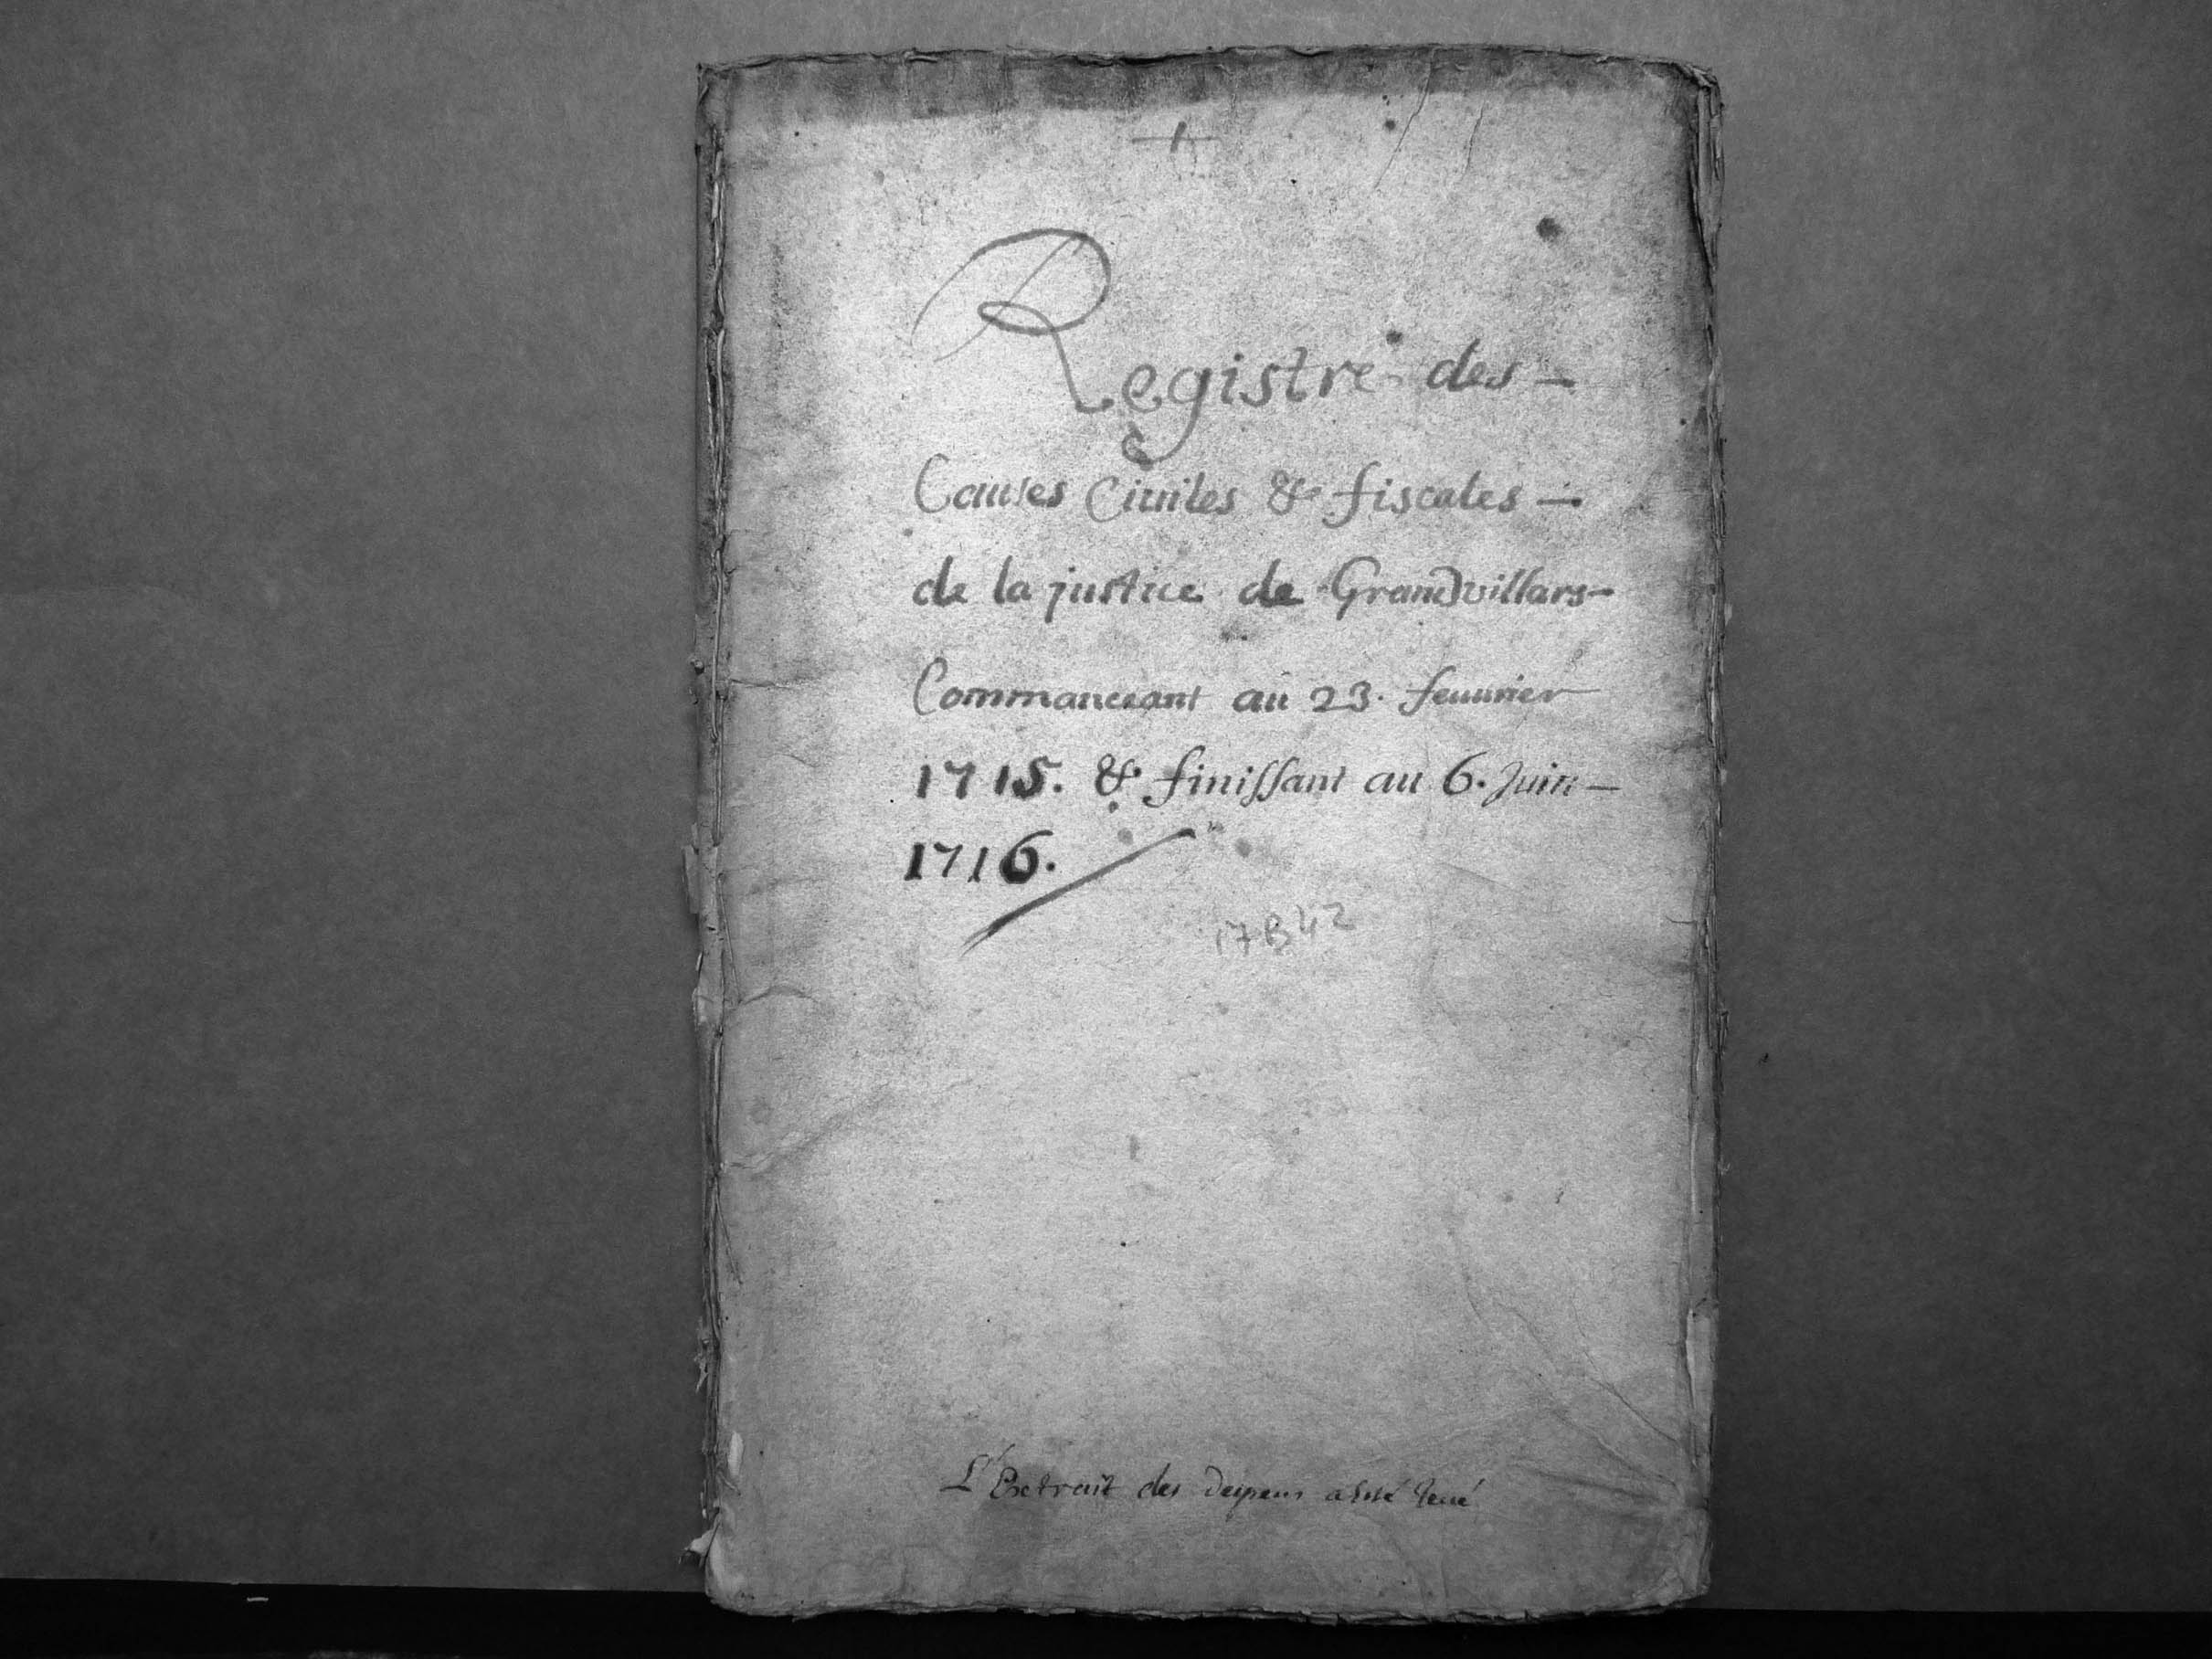 Registre des —
Causes Ciuiles & fiscales —
de la justice de Grandvillars —
Commanceant au 23. feuurier
1715. & finissant au 6. Juin —
1716.
17B42
L'Extrait des Despens a esté